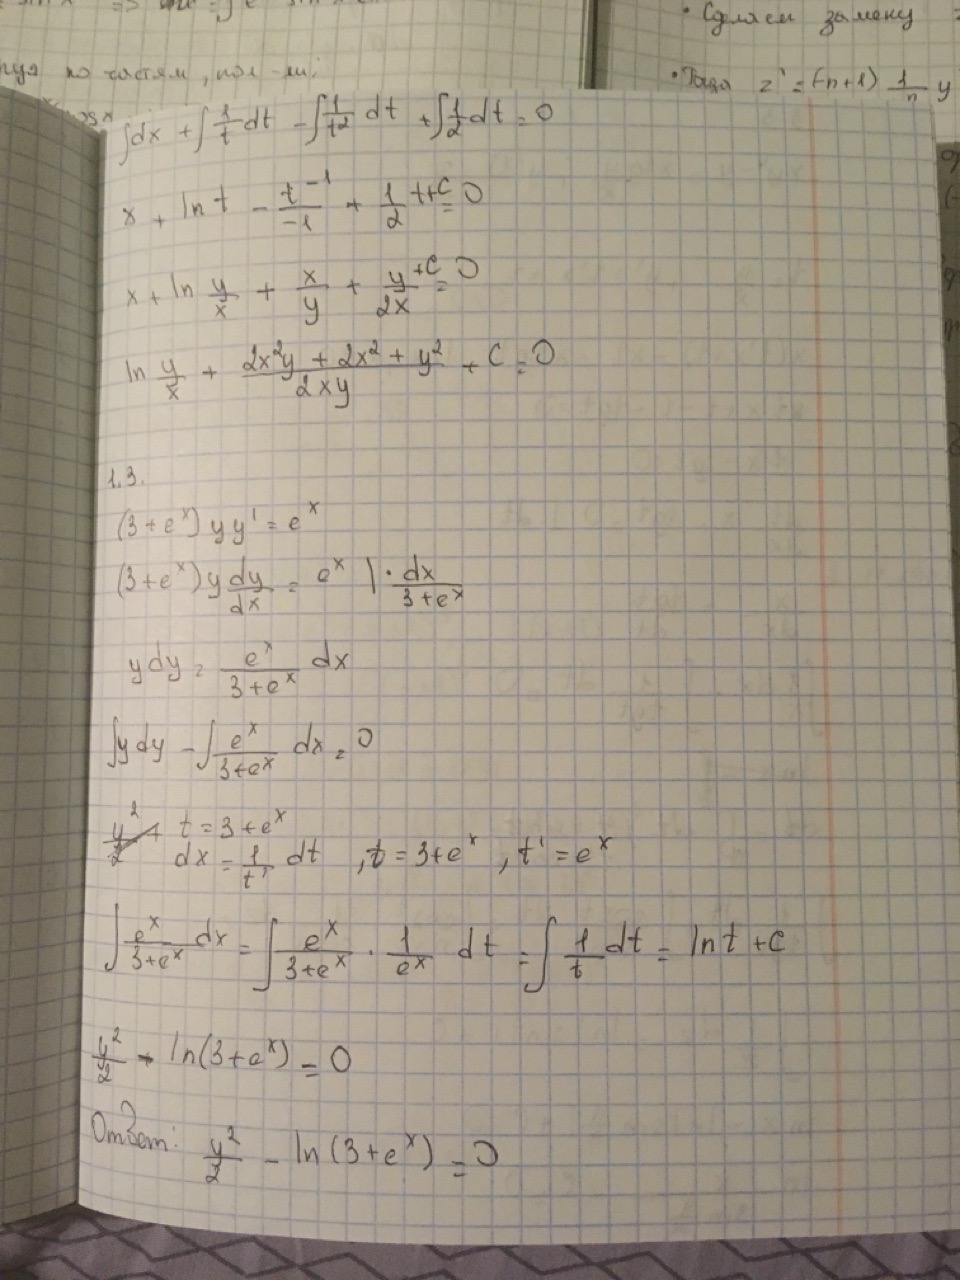 • Сделаем замену
по частям, пол-ли:
• Тогда z' = (-n+1) 1/n y
∫dx + ∫1/t dt - ∫1/t² dt + ∫1/2 dt = 0
x + ln t - t⁻¹/-1 + 1/2 t + C = 0
x + ln y/x + x/y + y/2x + C = 0
ln y/x + (2x²y + 2x² + y²)/2xy + C = 0
1.3.
(3+eˣ) y y' = eˣ
(3+eˣ) y dy/dx = eˣ | · dx/(3+eˣ)
y dy = eˣ/(3+eˣ) dx
∫y dy - ∫eˣ/(3+eˣ) dx = 0
y²/2 + t = 3 + eˣ
dx = 1/t' dt , t = 3+eˣ , t' = eˣ
∫eˣ/(3+eˣ) dx = ∫eˣ/(3+eˣ) · 1/eˣ dt = ∫1/t dt = ln t + C
y²/2 - ln(3+eˣ) = 0
Ответ: y²/2 - ln(3+eˣ) = 0